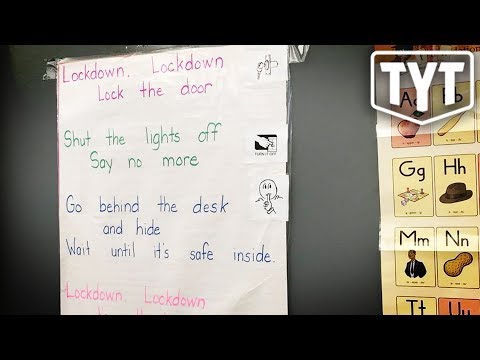 Lockdown, Lockdown
Lock the door
Shut the lights off
Say no more
TURN IT OFF
Go behind the desk
and hide
Wait until it's safe inside.
Lockdown, Lockdown
TYT
Gg
Hh
Mm
Nn
Tt
Uu